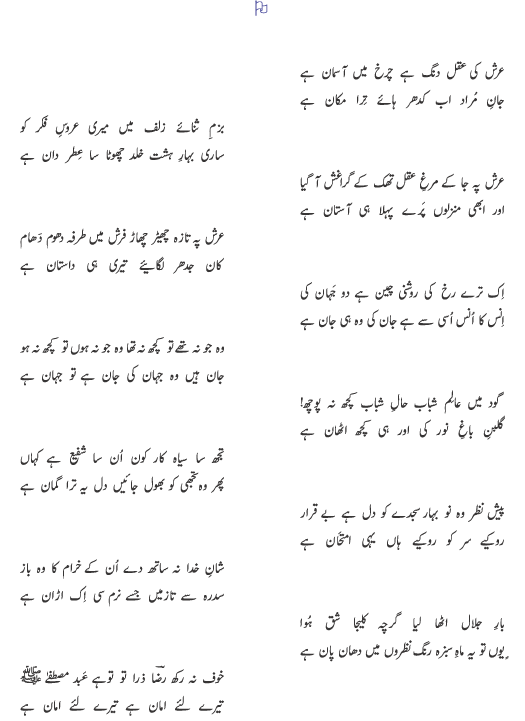 عرش کی عقل دنگ ہے چرخ میں آسمان ہے
جانِ مُراد اب کدھر ہائے ترا مکان ہے
بزمِ ثنائے زلف میں میری عروسِ فکر کو
ساری بہارِ ہشت خلد چھوٹا سا عِطر دان ہے
عرش پہ جا کے مرغِ عقل تھک کے گرا غش آ گیا
اور ابھی منزلوں پَرے پہلا ہی آستان ہے
عرش پہ تازہ چھیڑ چھاڑ فرش میں طرفہ دھوم دَھام
کان جدھر لگائیے تیری ہی داستان ہے
اِک ترے رخ کی روشنی چین ہے دو جَہان کی
اِنس کا اُنس اُسی سے ہے جان کی وہ ہی جان ہے
وہ جو نہ تھے تو کچھ نہ تھا وہ جو نہ ہوں تو کچھ نہ ہو
جان ہیں وہ جہان کی جان ہے تو جہان ہے
گود میں عالمِ شباب حالِ شباب کچھ نہ پوچھ!
گلبنِ باغِ نور کی اور ہی کچھ اٹھان ہے
تجھ سا سیاہ کار کون اُن سا شفیع ہے کہاں
پھر وہ تجھی کو بھول جائیں دل یہ ترا گمان ہے
پیشِ نظر وہ نو بہار سجدے کو دل ہے بے قرار
روکیے سر کو روکیے ہاں یہی امتحان ہے
شانِ خدا نہ ساتھ دے اُن کے خرام کا وہ باز
سدرہ سے تا زمیں جسے نرم سی اِک اڑان ہے
بارِ جلال اٹھا لیا گرچہ کلیجا شق ہُوا
یوں تو یہ ماہِ سبزہ رنگ نظروں میں دھان پان ہے
خوف نہ رکھ رضؔا ذرا تو تو ہے عَبد مصطفےٰ ﷺ
تیرے لئے امان ہے تیرے لئے امان ہے